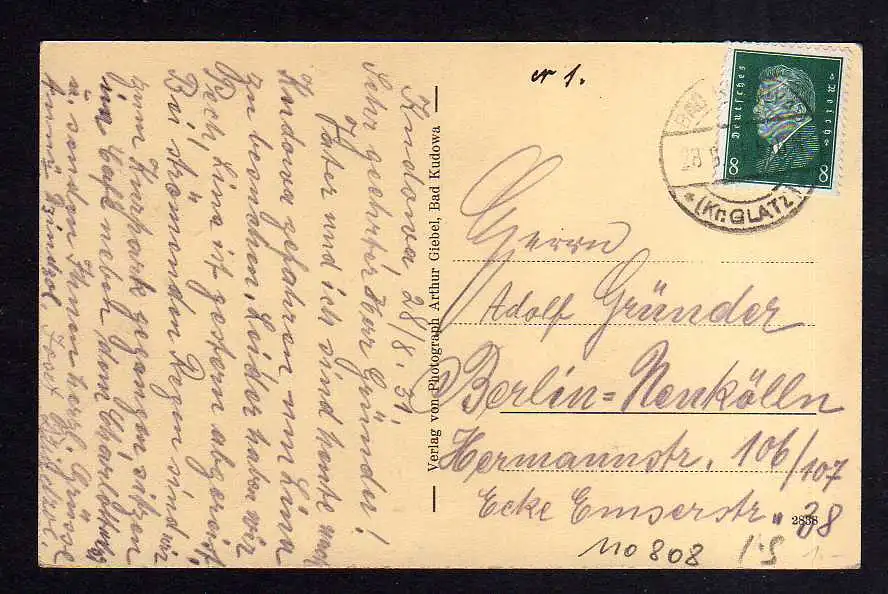 Kudowa, 28/8. 31.
Sehr geehrter Herr Gründer!
Vater und ich sind heute nach
Kudowa gefahren um Lina
zu besuchen. Leider haben wir
Pech, Lina ist gestern abgereist,
Bei strömenden Regen sind wir
zum Kurpark gegangen sitzen
im Café neben dem Charlottenbg
u. senden Ihnen herzl. Grüsse
Josef
Verlag von Photograph Arthur Giebel, Bad Kudowa
№ 1.
BAD
28 8
(Kr. GLATZ)
Deutsches Reich
8 8
Herrn
Adolf Gründer
Berlin=Neukölln
Hermannstr. 106/107
Ecke Emserstr. 38
2838
110808